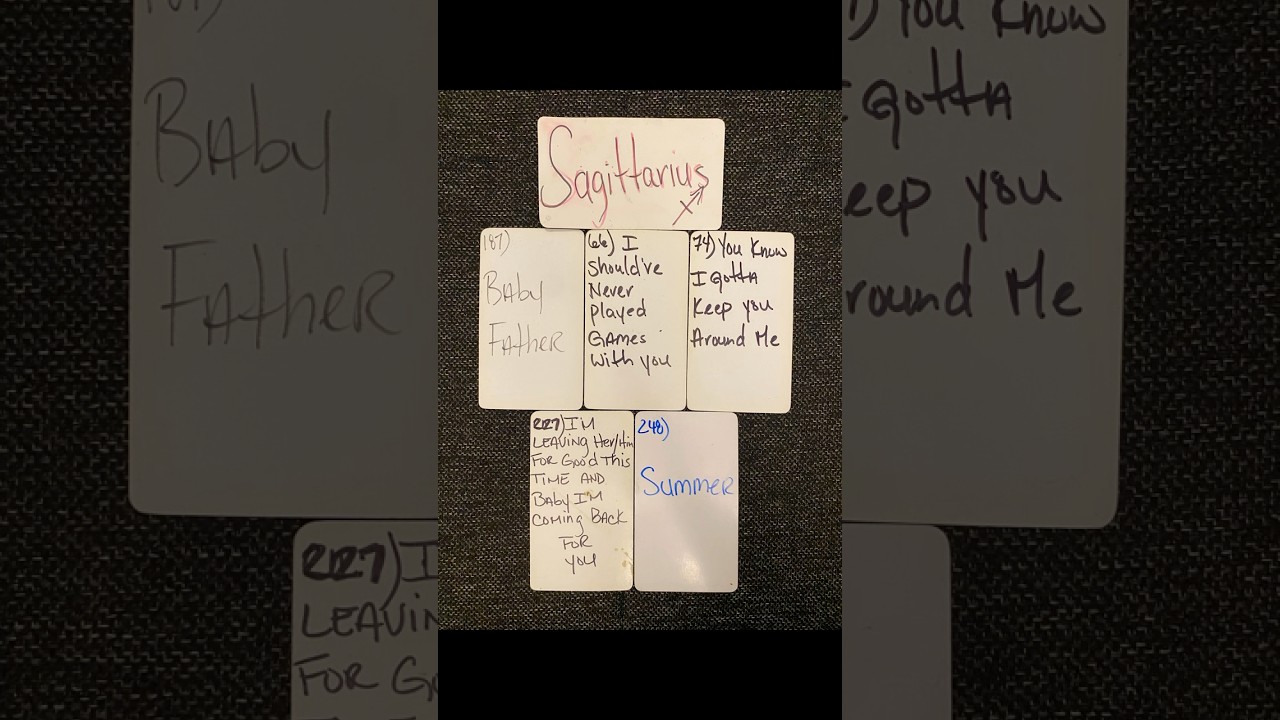 Sagittarius
187)
Baby
Father
66) I
Should've
Never
Played
Games
With you
74) You Know
I Gotta
Keep you
Around Me
227) I'm
Leaving Her/Him
For Good This
Time and
Baby I'm
Coming Back
For
you
248)
Summer